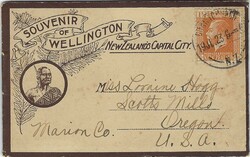 SOUVENIR
OF
WELLINGTON
NEW ZEALAND'S CAPITAL CITY.
Miss Loraine Hogg
Scotts Mills
Marion Co. Oregon
U. S. A.